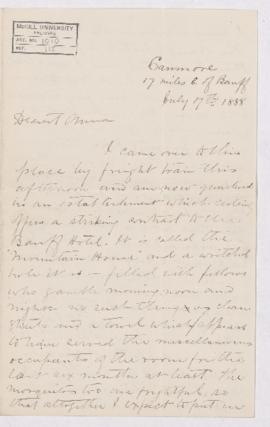 McGILL UNIVERSITY
ARCHIVES
ACC. NO. 1010
REF.
Canmore
17 miles E of Banff
July 17th 1888
Dearest Anna
I came over to this
place by freight train this
afternoon and am now quartered
in an establishment which
offers a striking contrast to the
Banff Hotel. It is called the
"Mountain House" and a wretched
hole it is - filled with fellows
who gamble morning noon and
night. no such thing as clean
sheets and a towel which appears
to have served the miscellaneous
occupants of the rooms for the
last six months at least. The
mosquitos too are frightful, so
that altogether I expect to put in